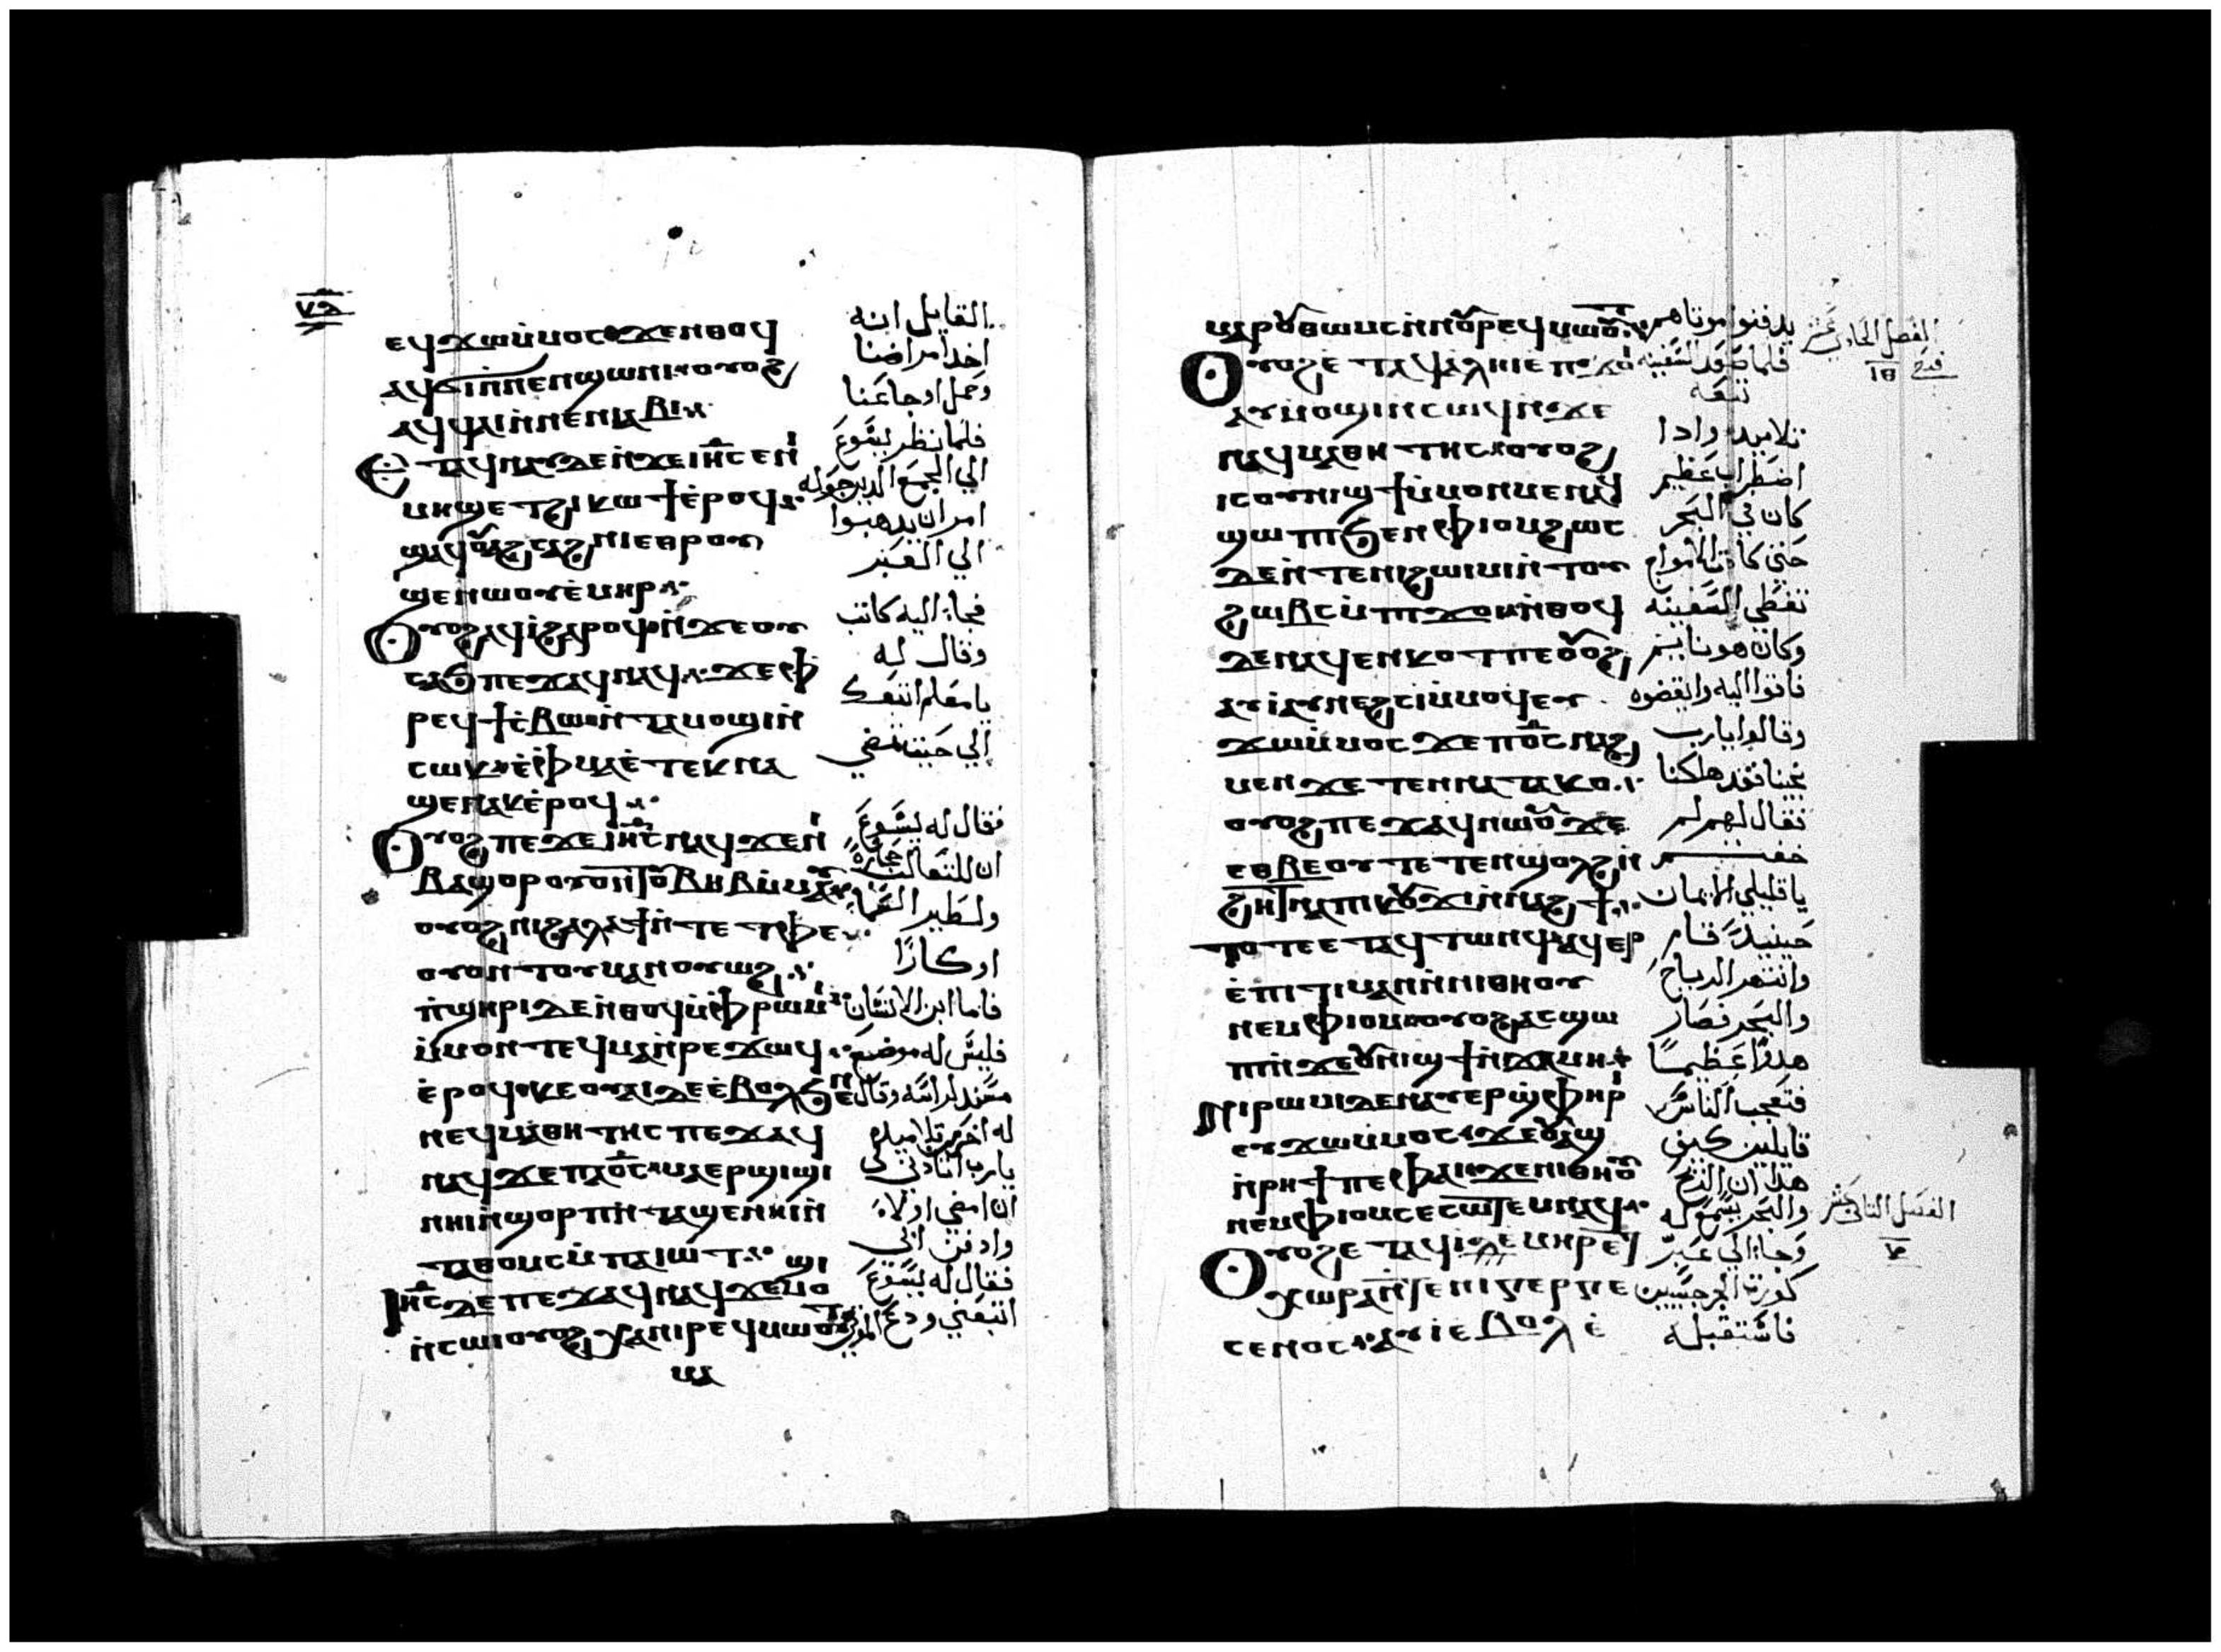 ⲉϥϫⲱⲙ̇ⲙⲟⲥ ϫⲉⲛⲑⲟϥ
ⲁϥϭⲓⲛ̇ⲛⲉⲛϣⲱⲛⲓ ⲟⲩⲟϩ
ⲁϥϥⲁⲓⲛ̇ⲛⲉⲛⲓⲁⲃⲓ
ⲉⲧⲁϥⲛⲁⲩ ⲇⲉⲛ̇ϫⲉⲓⲏ̅ⲥ̅ ⲉⲛⲓ
ⲙⲏϣ ⲉⲧⲕⲱϯ ⲉ̇ⲣⲟϥ
ⲁϥⲟⲩⲁϩⲥⲁϩⲛⲓ ⲉⲑⲣⲟⲩ
ϣⲉⲛⲱⲟⲩ ⲉ̇ⲙⲏⲣ
ⲟⲩⲟϩ ⲁϥⲓ̇ ϩⲁⲣⲟϥ ⲛ̇ϫⲉⲟⲩ
ⲥⲁϧ ⲡⲉϫⲁϥⲛⲁϥ ϫⲉⲫ
ⲣⲉϥϯⲥ̇ⲃⲱ ⲛ̇ⲧⲁⲙⲟϣⲓⲛ̇
ⲥⲱⲕ ⲉ̇ⲫⲙⲁ ⲉ̇ⲧⲉⲕⲛⲁ
ϣⲉⲛⲁⲕ ⲉ̇ⲣⲟϥ
ⲟⲩⲟϩ ⲡⲉϫⲉ ⲓⲏ̅ⲥ̅ ⲛⲁϥ ϫⲉⲛⲓ
ⲃⲁϣⲟⲣ ⲟⲩⲟⲛⲧⲟⲩⲃⲏⲃ ⲙ̇ⲙⲁⲩ
ⲟⲩⲟϩ ⲛⲓϩⲁⲗⲁϯ ⲛ̇ⲧⲉ ⲧⲫⲉ
ⲟⲩⲟⲛⲧⲟⲩⲙⲁⲛⲟⲩⲱϩ
ⲡ̇ϣⲏⲣⲓ ⲇⲉⲛ̇ⲑⲟϥ ⲙ̇ⲫⲣⲱⲙⲓ
ⲙ̇ⲙⲟⲛⲧⲉϥⲙⲁⲛ̇ⲣⲉϫⲱϥ
ⲉ̇ⲣⲟϥ ⲕⲉⲟⲩⲁⲓ ⲇⲉ ⲉ̇ⲃⲟⲗϧⲉⲛ
ⲛⲉϥⲙⲁⲑⲏⲧⲏⲥ ⲡⲉϫⲁϥ
ⲛⲁϥ ϫⲉ ⲡⲁⲟ̅ⲥ̅ ⲙⲁⲉⲣϣⲓϣⲓ
ⲛⲏⲓ ⲛ̇ϣⲟⲣⲡ ⲛ̇ⲧⲁϣⲉⲛⲏⲓ ⲛ̇
ⲧⲁⲑⲟⲙⲥ ⲙ̇ⲡⲁⲓⲱⲧ
ⲓⲏ̅ⲥ̅ ⲇⲉ ⲡⲉϫⲁϥ ⲛⲁϥ ϫⲉⲙⲟ
ϣⲓ
ⲛ̇ⲥⲱⲓ ⲟⲩⲟϩ ⲭⲁⲛⲓⲣⲉϥⲙⲱⲟⲩⲧ
ⲙⲁ
القايل انه
اخد امراضنا
وحمل اوجاعنا
فلما نظر يشوع
الي الجمع الدين حوله
امر ان يدهبوا
الي العبر
فجاء اليه كاتب
وقال له
يا معلم اتبعك
الي حيث تمضي
فقال له يشوع
ان للتعالب
ولطير السما
اوكارًا
فاما ابن الانسان
فليس له موضع
مسند لراسه وقال
له اخر من تلاميده
يارب اتادن لي
ان امضي اولاً
وادفن ابي
فقال له يسوع
اتبعني ودع
ⲣⲟⲩⲑⲱⲙⲥ ⲛ̇ⲛⲟⲩⲣⲉϥⲙⲱⲟⲩⲧ
ⲟⲩⲟϩ ⲉⲧⲁϥⲁⲗⲏⲓ ⲉⲡϫⲟⲓ
ⲁⲩⲙⲟϣⲓ ⲛ̇ⲥⲱϥ ⲛ̇ϫⲉ
ⲛⲉϥⲙⲁⲑⲏⲧⲏⲥ ⲟⲩⲟϩ
ⲓⲥ ⲟⲩⲛⲓϣϯ ⲙ̇ⲙⲟⲛⲙⲉⲛ ⲁϥ
ϣⲱⲡⲓ ϧⲉⲛ ⲫⲓⲟⲙ ϩⲱⲥ
ⲇⲉ ⲛ̇ⲧⲉⲛⲓϩⲱⲓⲙⲓ ⲛ̇ⲧⲟⲩ
ϩⲱⲃⲥ ⲙ̇ⲡϫⲟⲓ ⲛ̇ⲑⲟϥ
ⲇⲉ ⲛⲁϥⲉⲛⲕⲟⲧ ⲡⲉ ⲟⲩⲟϩ
ⲁⲩⲓ̇ ⲁⲩⲛⲉϩⲥⲓ ⲙ̇ⲙⲟϥ ⲉⲩ
ϫⲱⲙ̇ⲙⲟⲥ ϫⲉ ⲡⲟ̅ⲥ̅ ⲛⲁϩ
ⲙⲉⲛ ϫⲉ ⲧⲉⲛⲛⲁⲧⲁⲕⲟ
ⲟⲩⲟϩ ⲡⲉϫⲁϥ ⲛⲱⲟⲩ ϫⲉ
ⲉⲑⲃⲉⲟⲩ ⲧⲉⲧⲉⲛϣⲟⲗϩ ⲛ̇
ϩⲏⲧ ⲛⲁⲡⲓⲕⲟⲩϫⲓ ⲛ̇ⲛⲁϩϯ
ⲧⲟⲧⲉ ⲉⲧⲁϥⲧⲱⲛϥ ⲁϥⲉⲣ
ⲉ̇ⲡⲓⲧⲓⲙⲁⲛ ⲛ̇ⲛⲓⲑⲏⲟⲩ
ⲛⲉⲙ ⲫⲓⲟⲙ ⲟⲩⲟϩ ⲁⲥϣⲱ
ⲡⲓ ⲛ̇ϫⲉⲟⲩⲛⲓϣϯ ⲛ̇ϫⲁⲙⲏ
ⲛⲓⲣⲱⲙⲓ ⲇⲉ ⲛⲁⲩⲉⲣϣⲫⲏⲣⲓ
ⲉⲩϫⲱⲙ̇ⲙⲟⲥ ϫⲉ ⲟⲩⲁϣ
ⲛ̇ⲣⲏϯ ⲡⲉ ⲫⲁⲓ ϫⲉ ⲛⲓⲑⲏⲟⲩ
ⲛⲉⲙ ⲫⲓⲟⲙ ⲥⲉⲥⲱⲧⲉⲙ ⲛⲁϥ
ⲟⲩⲟϩ ⲉⲧⲁϥⲓ̇ ⲉⲙⲏⲣ ⲉϯ
ⲭⲱⲣⲁ ⲛ̇ⲧⲉ ⲛⲓⲅⲉⲣⲅⲉ
ⲥⲉⲛⲟⲥ ⲁⲩⲓ̇ ⲉ̇ⲃⲟⲗ ⲉ̇
يدفنوا موتاهم
فلما صعد السفينه
تبعه
تلاميده وادا
اضطراب عظيم
كان في البحر
حتي كادت الامواج
تغطي السفينه
وكان هو نايم
فاتوا اليه وايقضوه
وقالوا يارب
نجينا فقد هلكنا
فقال لهم لم
يا قليلي الايمان
حينيد قام
وانتهر الرياح
والبحر فصار
هدوًا عظيمًا
فتعجب الناس
قايلين كيف
هدا ان الريح
والبحر يسمع له
وجاء الي عبر
كورة الجرجسيين
فاستقبله
الفصل الحادي عشر
الفصل التاني عشر